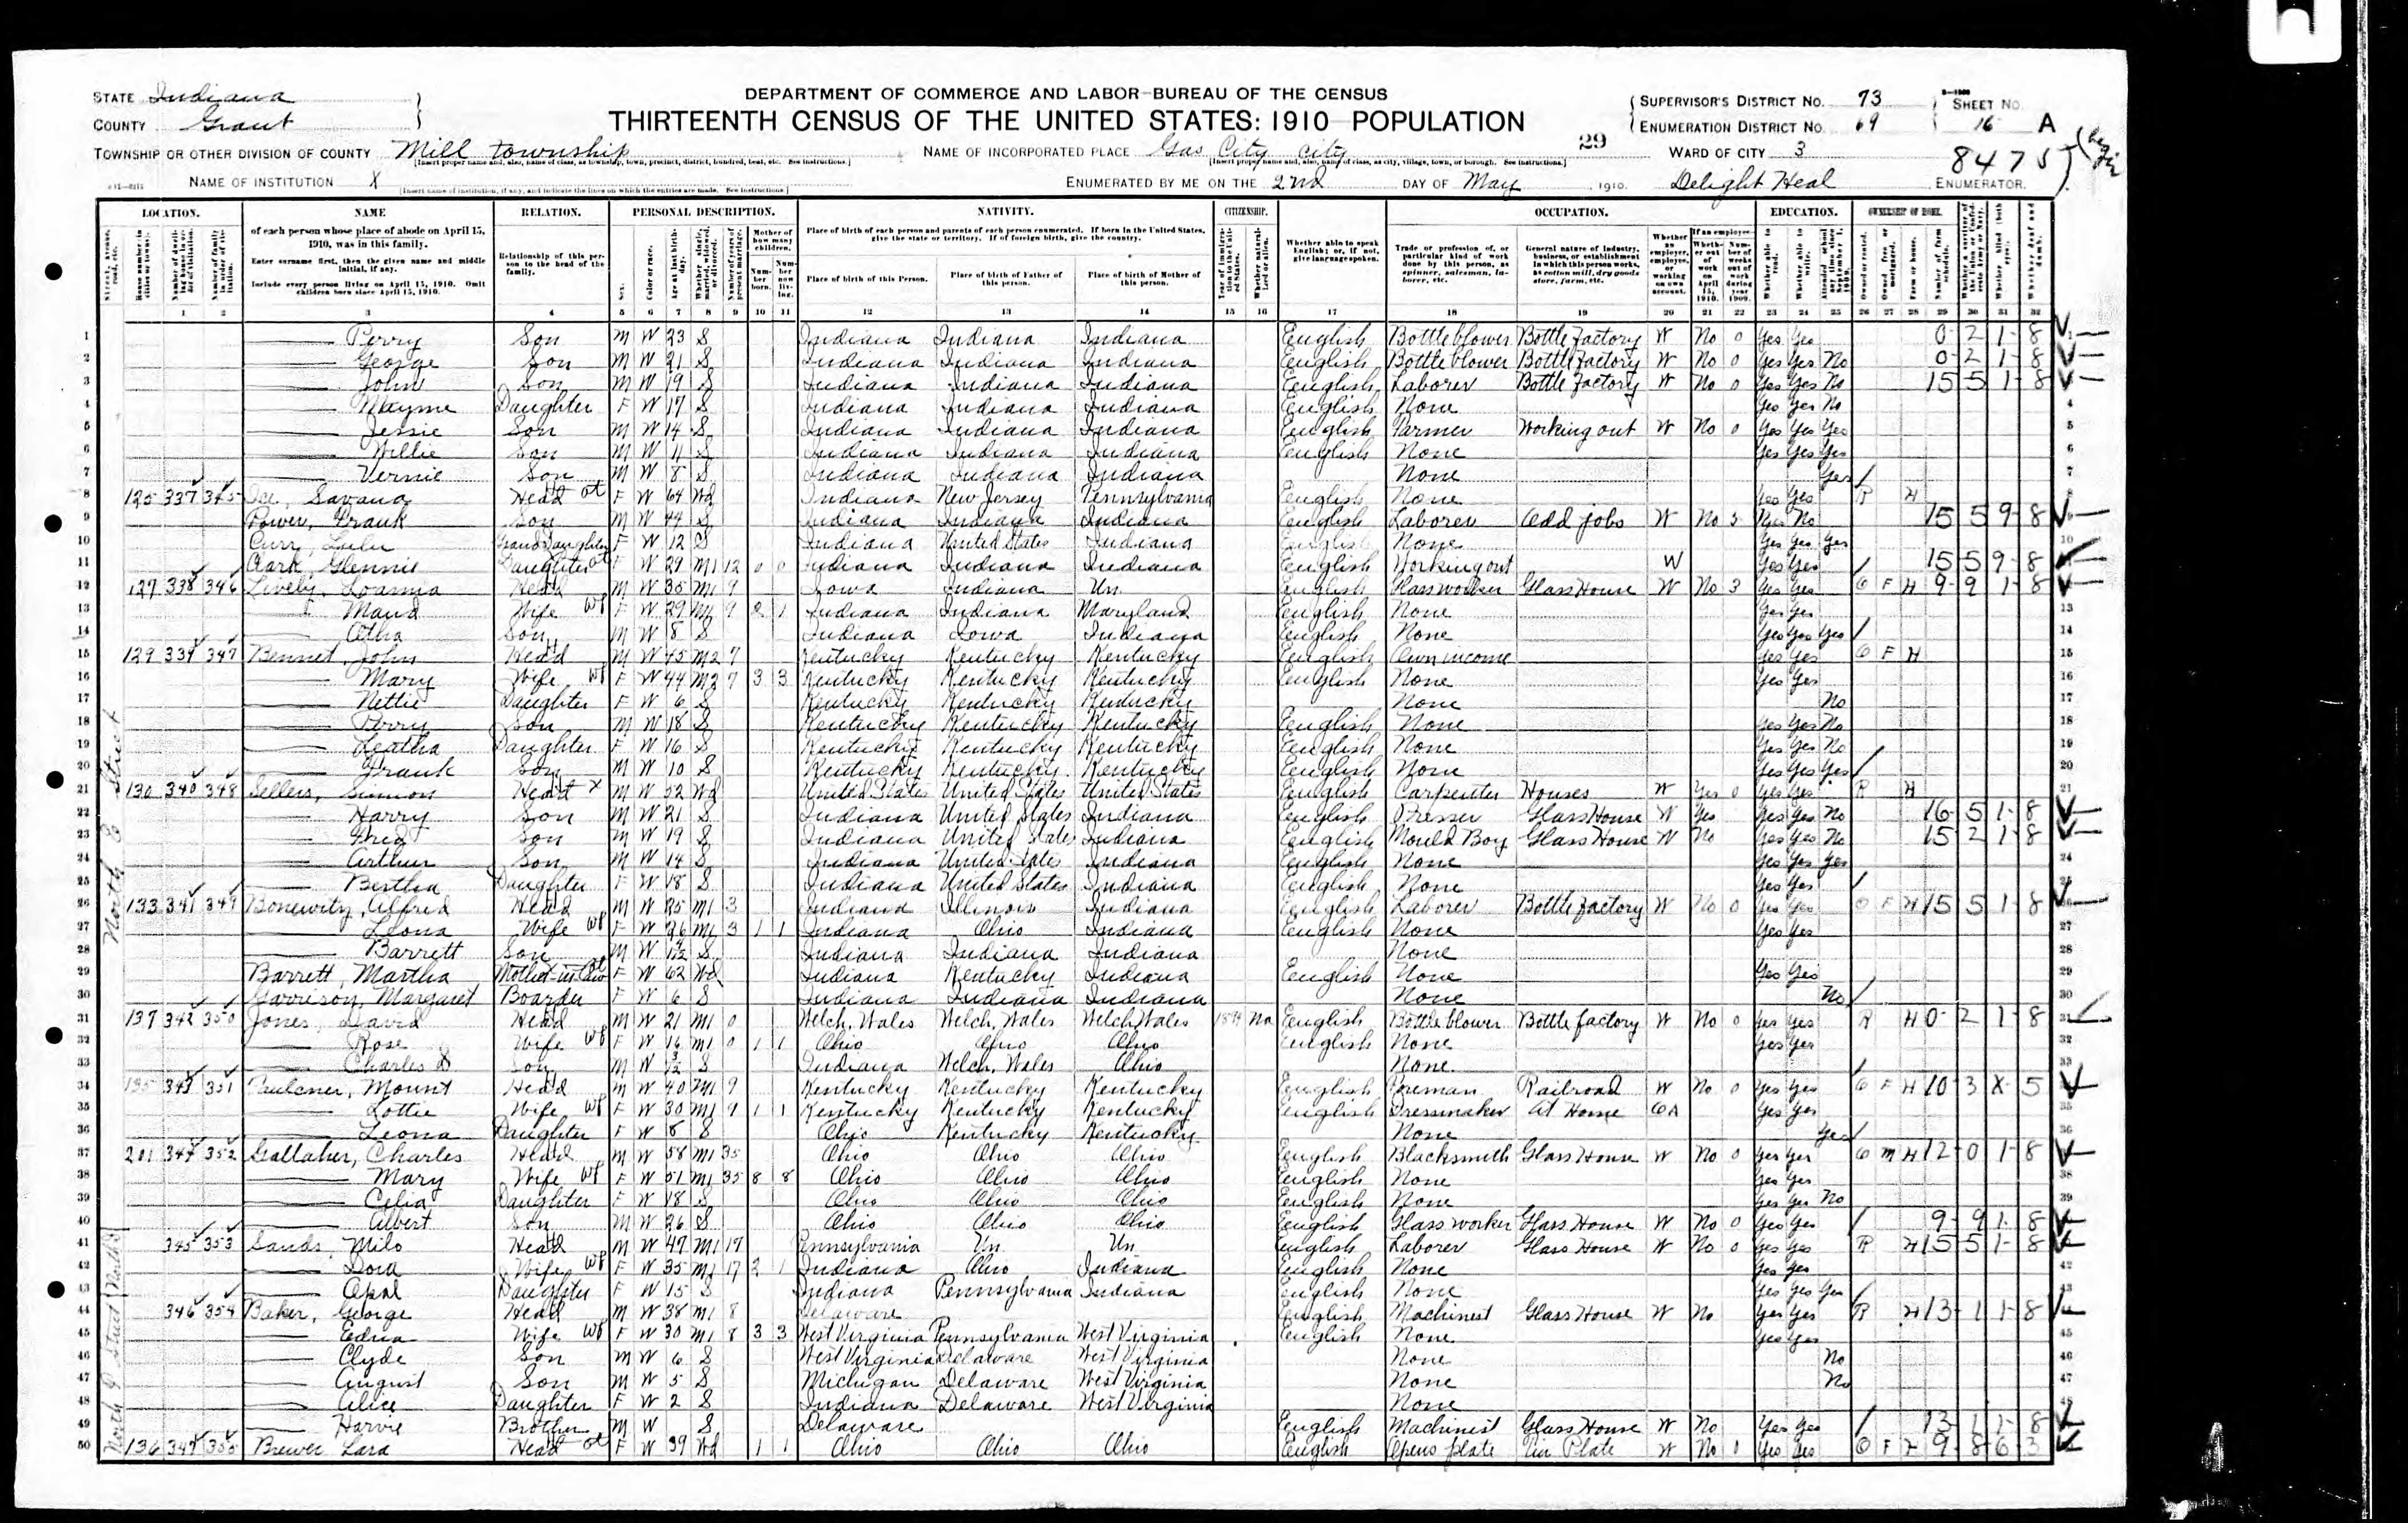 STATE Indiana
COUNTY Grant
DEPARTMENT OF COMMERCE AND LABOR-BUREAU OF THE CENSUS
THIRTEENTH CENSUS OF THE UNITED STATES: 1910 POPULATION
SUPERVISOR'S DISTRICT No. 73 SHEET No.
ENUMERATION DISTRICT No. 69 16 A
TOWNSHIP OR OTHER DIVISION OF COUNTY Mill township NAME OF INCORPORATED PLACE Gas City City 29 WARD OF CITY 3
8475
NAME OF INSTITUTION X ENUMERATED BY ME ON THE 2nd DAY OF May, 1910. Delight Heal ENUMERATOR.
LOCATION. NAME RELATION. PERSONAL DESCRIPTION. NATIVITY. CITIZENSHIP. OCCUPATION. EDUCATION. OWNERSHIP OF HOME.
of each person whose place of abode on April 15, 1910, was in this family.
Enter surname first, then the given name and middle initial, if any.
Include every person living on April 15, 1910. Omit children born since April 15, 1910.
Relationship of this person to the head of the family.
Place of birth of each person and parents of each person enumerated. If born in the United States, give the state or territory. If of foreign birth, give the country.
Place of birth of this Person. Place of birth of Father of this person. Place of birth of Mother of this person.
Whether able to speak English; or, if not, give language spoken.
1 2 3 4 5 6 7 8 9 10 11 12 13 14 15 16 17 18 19 20 21 22 23 24 25 26 27 28 29 30 31 32
1 Perry Son M W 23 S Indiana Indiana Indiana English Bottle blower Bottle Factory W No 0 Yes Yes 0 2 1 8
2 George Son M W 21 S Indiana Indiana Indiana English Bottle blower Bottle Factory W No 0 Yes Yes No 0 2 1 8
3 John Son M W 19 S Indiana Indiana Indiana English Laborer Bottle Factory W No 0 Yes Yes No 15 5 1 8
4 Mayme Daughter F W 17 S Indiana Indiana Indiana English None Yes Yes No
5 Jessie Son M W 14 S Indiana Indiana Indiana English Farmer Working out W No 0 Yes Yes Yes
6 Willie Son M W 11 S Indiana Indiana Indiana English None Yes Yes Yes
7 Vernie Son M W 8 S Indiana Indiana Indiana None Yes
8 125 337 345 Savana Head F W 64 Wd Indiana New Jersey Pennsylvania English None Yes Yes R H
9 Power, Frank Son M W 44 S Indiana Indiana Indiana English Laborer Odd jobs W No 5 No 15 5 9 8
10 Lulu Grand Daughter F W 12 S Indiana United States Indiana English None Yes Yes Yes
11 Clark, Glennie Daughter F W 29 M1 12 0 0 Indiana Indiana Indiana English Working out W Yes Yes 15 5 9 8
12 127 338 346 Lively, Head M W 35 M1 9 Iowa Indiana Un English Glass worker Glass House W No 3 Yes Yes O F H 9 9 1 8
13 Maud Wife F W 29 M1 9 2 1 Indiana Indiana Maryland English None Yes Yes
14 Son M W 8 S Indiana Iowa Indiana English None Yes Yes Yes
15 129 339 347 Bennet, John Head M W 45 M2 7 Kentucky Kentucky Kentucky English Own income Yes Yes O F H
16 Mary Wife F W 44 M2 7 3 3 Kentucky Kentucky Kentucky English None Yes Yes
17 Nettie Daughter F W 6 S Kentucky Kentucky Kentucky None No
18 Perry Son M W 18 S Kentucky Kentucky Kentucky English None Yes Yes No
19 Leatha Daughter F W 16 S Kentucky Kentucky Kentucky English None Yes Yes No
20 Frank Son M W 10 S Kentucky Kentucky Kentucky English None Yes Yes Yes
21 130 340 348 Sellers, Simion Head X M W 52 Wd United States United States United States English Carpenter Houses W Yes 0 Yes Yes R H
22 Harry Son M W 21 S Indiana United States Indiana English Presser Glass House W Yes Yes Yes No 16 5 1 8
23 Fred Son M W 19 S Indiana United States Indiana English Mould Boy Glass House W No Yes Yes No 15 2 1 8
24 Arthur Son M W 14 S Indiana United States Indiana English None Yes Yes Yes
25 Bertha Daughter F W 18 S Indiana United States Indiana English None Yes Yes
26 133 341 349 Bonewitz, Alfred Head M W 25 M1 3 Indiana Illinois Indiana English Laborer Bottle Factory W No 0 Yes Yes O F H 15 5 1 8
27 Leona Wife F W 26 M1 3 1 1 Indiana Ohio Indiana English None Yes Yes
28 Barrett Son M W S Indiana Indiana Indiana None
29 Barrett, Martha Mother-in-law F W 62 Wd Indiana Kentucky Indiana English None Yes Yes
30 Garrison, Margaret Boarder F W 6 S Indiana Indiana Indiana None No
31 137 342 350 Jones, David Head M W 21 M1 0 Welch, Wales Welch, Wales Welch, Wales Na English Bottle blower Bottle factory W No 0 Yes Yes R H 0 2 1 8
32 Rose Wife F W 16 M1 0 1 1 Ohio Ohio Ohio English None Yes Yes
33 Charles D Son M W 3/12 S Indiana Welch, Wales Ohio None
34 135 343 351 Faulcner, Mount Head M W 40 M1 9 Kentucky Kentucky Kentucky English Foreman Railroad W No 0 Yes Yes O F H 10 3 X 5
35 Lottie Wife F W 30 M1 9 1 1 Kentucky Kentucky Kentucky English Dressmaker At Home OA Yes Yes
36 Leona Daughter F W 8 S Ohio Kentucky Kentucky None Yes
37 201 344 352 Gallaher, Charles Head M W 58 M1 35 Ohio Ohio Ohio English Blacksmith Glass House W No 0 Yes Yes O M H 12 0 1 8
38 Mary Wife F W 51 M1 35 8 8 Ohio Ohio Ohio English None Yes Yes
39 Celia Daughter F W 18 S Ohio Ohio Ohio English None Yes Yes No
40 Albert Son M W 26 S Ohio Ohio Ohio English Glass worker Glass House W No 0 Yes Yes 9 9 1 8
41 345 353 Sands, Milo Head M W 49 M1 17 Pennsylvania Un Un English Laborer Glass House W No 0 Yes Yes R H 15 5 1 8
42 Dora Wife F W 35 M1 17 2 1 Indiana Ohio Indiana English None Yes Yes
43 Opal Daughter F W 15 S Indiana Pennsylvania Indiana English None Yes Yes Yes
44 346 354 Baker, George Head M W 38 M1 8 Delaware English Machinist Glass House W No Yes Yes R H 13 1 1 8
45 Edna Wife F W 30 M1 8 3 3 West Virginia Pennsylvania West Virginia English None Yes Yes
46 Clyde Son M W 6 S West Virginia Delaware West Virginia None No
47 August Son M W 5 S Michigan Delaware West Virginia None No
48 Alice Daughter F W 2 S Indiana Delaware West Virginia None
49 Harvie Brother M W S Delaware English Machinist Glass House W No Yes Yes 13 1 1 8
50 136 347 355 Brewer Lara Head F W 39 Wd 1 1 Ohio Ohio Ohio English Opens plate Tin Plate W No Yes Yes O F H 9 8 6 3